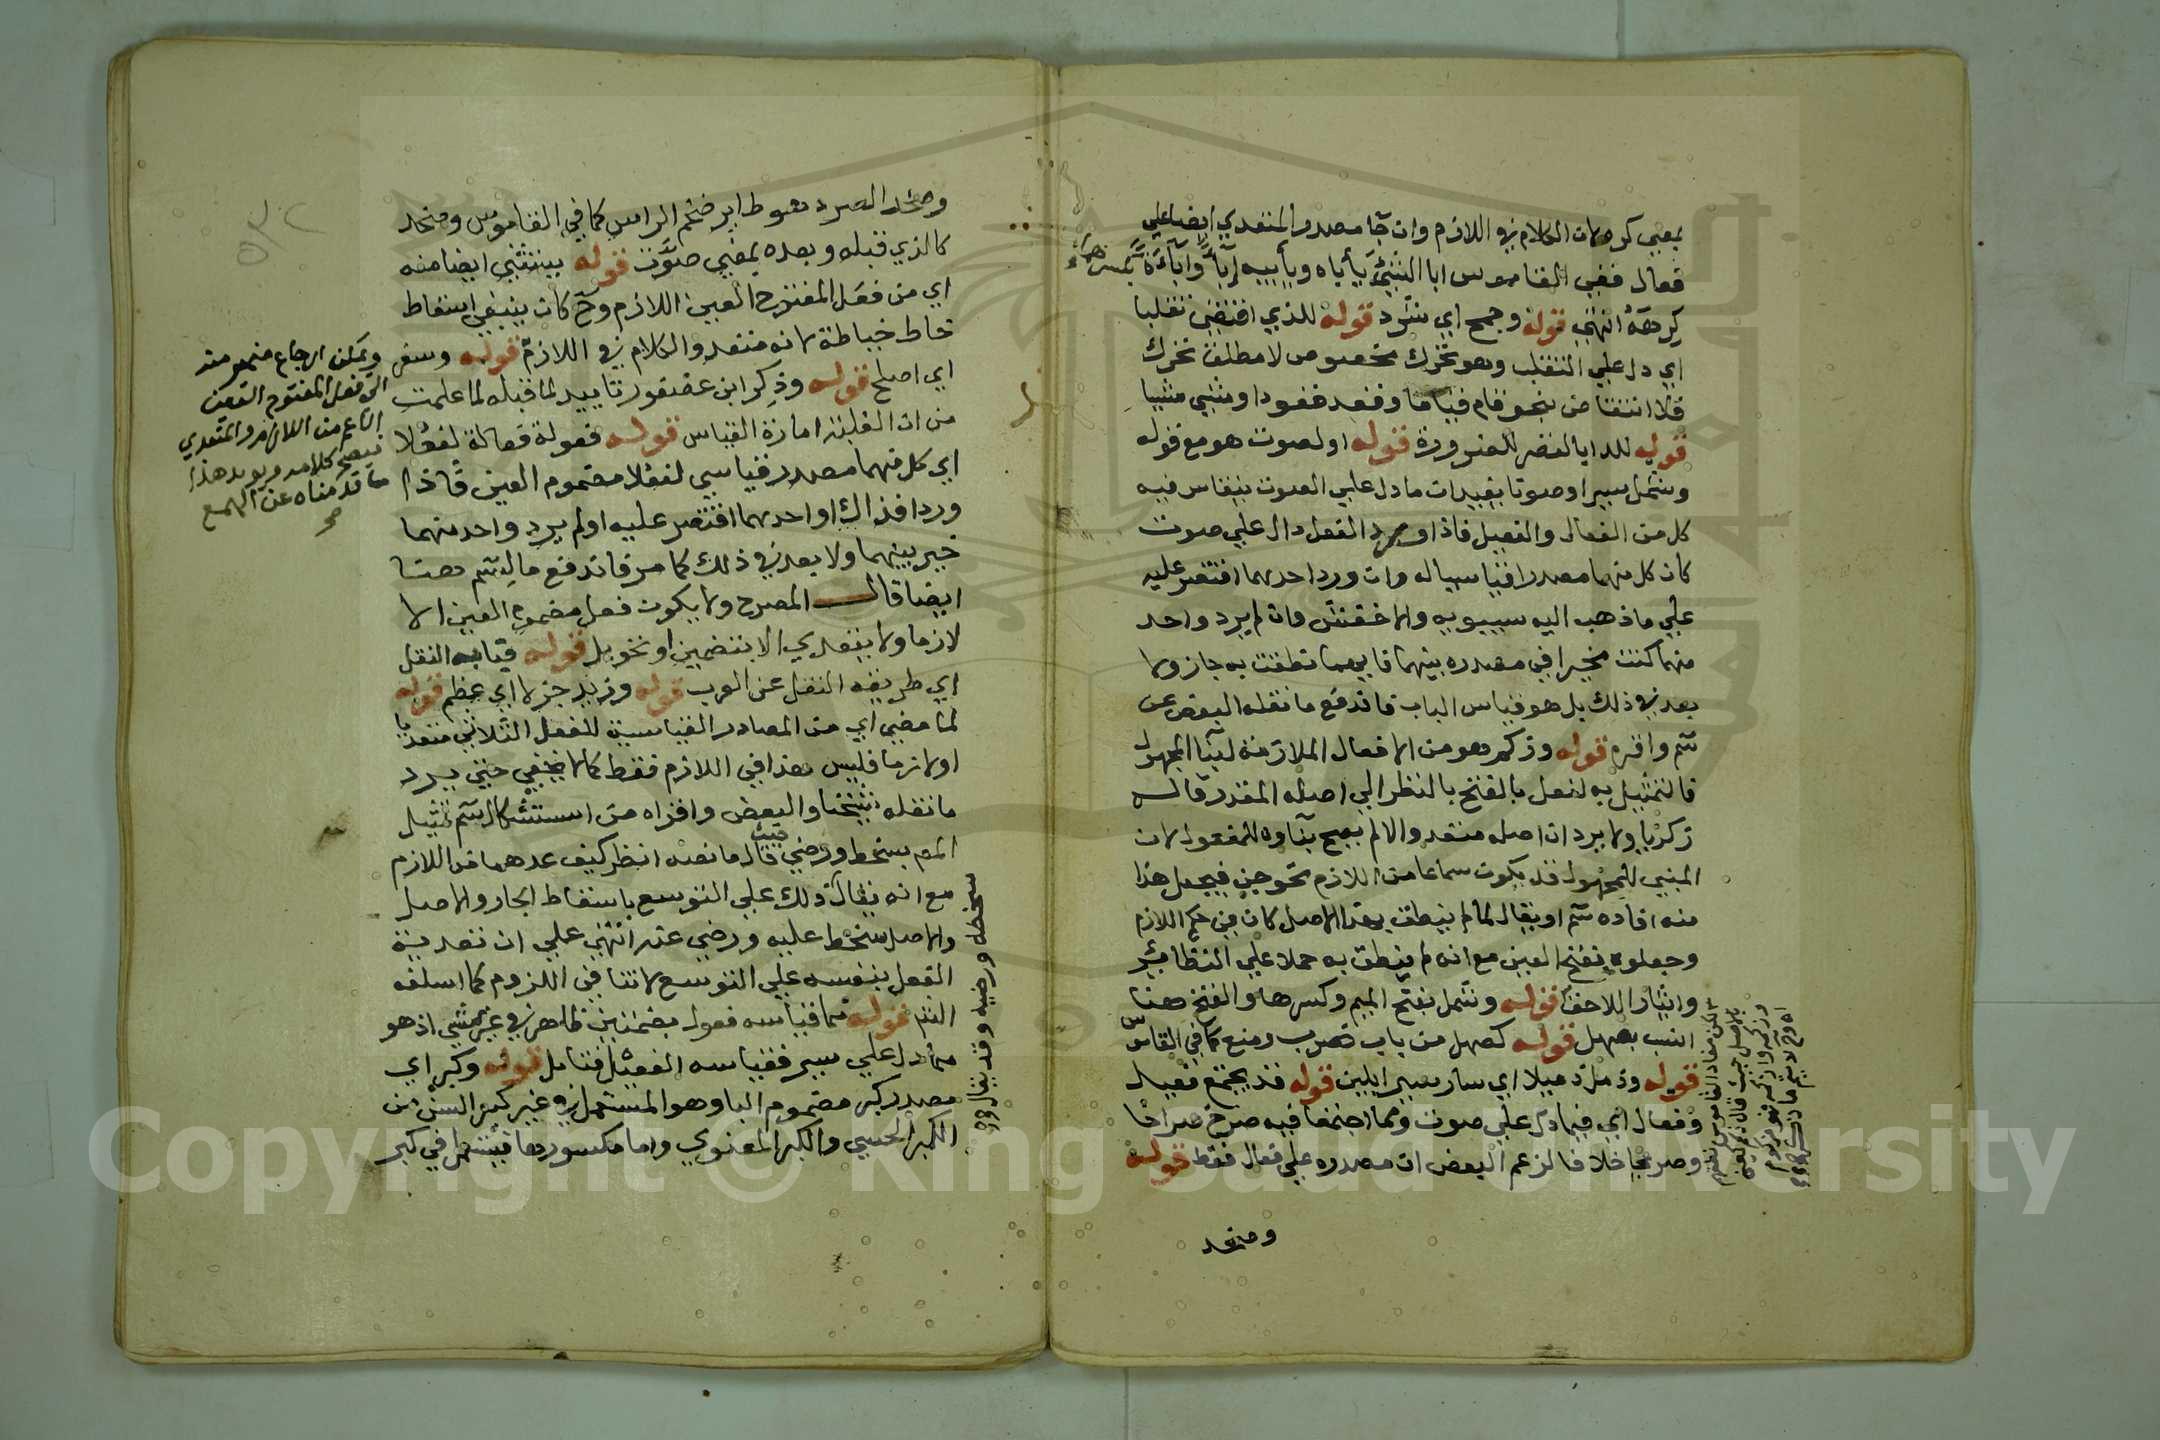 بمعني كره لان الكلام في اللازم وان جآ مصدر المتعدي ايضا علي
فعال ففي القاموس ابا الشئ يأباه ويأبيه إبآءً وإبآءة بكسرهما
كرهه انتهي قوله وجمح اي شرد قوله للذي اقتضي تقلبا
اي دل علي التقلب وهو تحرك مخصوص لا مطلق تحرك
فلا انتقاض بنحو قام قياما وقعد قعودا ومشي مشيا
قوله للدا بالقصر للضرورة قوله او لصوت هو مع قوله
وشمل سيرا وصوتا يفيد ان ما دل علي الصوت ينقاس فيه
كل من الفعال والفعيل فاذا ورد الفعل دال علي صوت
كان كل منهما مصدرا قياسيا له وان ورد احدهما اقتصر عليه
علي ما ذهب اليه سيبويه والاخفش وان لم يرد واحد
منهما كنت مخيرا في مصدره بينهما فايهما نطقت به جاز ولا
بعد في ذلك بل هو قياس الباب فاندفع ما نقله البعض عن
سم واقره قوله وزكم هو من الافعال الملازمة لبنآ المجهول
فالتمثيل به لفعل بالفتح بالنظر الي اصله المقدر قاله
زكريا ولا يرد ان اصله متعد والا لم يصح بنآوه للمفعول لان
المبني للمجهول قد يكون سماعا من اللازم نحو جن فيجعل هذا
منه افاده سم او يقال لما لم ينطق بهذا الاصل كان في حكم اللازم
وجعلوه بفتح العين مع انه لم ينطق به حملا علي النظائر
وايثارا للاخف قوله وشمل بفتح الميم وكسرها والفتح هنا
انسب بصهل قوله كصهل من باب ضرب ومنع كما في القاموس
قوله وذمل ذميلا اي سار سيرا بلين قوله قد يجتمع فعيل
وفعال اي فيما دل علي صوت ومما اجتمعا فيه صرخ صراخا
وصريخا خلافا لزعم البعض ان مصدره علي فعال فقط قوله
وصخد
وصخد الصرد هو طاير ضخم الراس كما في القاموس وصخد
كالذي قبله وبعده بمعني صوت قوله يستثني ايضا منه
اي من فعل المفتوح العين اللازم وح كان ينبغي اسقاط
خاط خياطة لانه متعد والكلام في اللازم قوله وسفر
اي اصلح قوله وذكر ابن عصفور تاييد لما قبله لما علمت
من ان الغلبة امارة القياس قوله فعولة فعالة لفعلا
اي كل منهما مصدر قياسي لفعلا مضموم العين فاذا
وردا فذاك او احدهما اقتصر عليه او لم يرد واحد منهما
خير بينهما ولا بعد في ذلك كما مر فاندفع ما لسم هنا
ايضا قال المصرح ولا يكون فعل مضموم العين الا
لازما ولا يتعدي الا بتضمين او تحويل قوله فبابه النقل
اي طريقه النقل عن العرب قوله وزيد جزلا اي عظم قوله
لما مضي اي من المصادر القياسية للفعل الثلاثي متعديا
او لازما فليس هذا في اللازم فقط كما لا يخفي حتي يرد
ما نقله شيخنا والبعض واقراه من استشكال سم تمثيل
المص بسخط ورضي حيث قال ما نصه انظر كيف عدهما من اللازم
مع انه يقال ذلك علي التوسع باسقاط الجار والاصل
والاصل سخط عليه ورضي عنه انتهي علي ان تعدية
الفعل بنفسه علي التوسع لا تنافي اللزوم كما اسلفه
الشم قوله مما قياسه فعول بضمتين ظاهر في غير مشي اذ هو
مما دل علي سير فقياسه الفعيل فتامل قوله وكبر اي
مصدر كبر مضموم البا وهو المستعمل في غير كبر السن من
الكبر الحسي والكبر المعنوي واما مكسورها فيستعمل في كبر
ويمكن ارجاع ضمير منه
الي فعل المفتوح العين
الاعم من اللازم والمتعدي
فيصح كلامه ويويد هذا
ما قدمناه عن الهمع
سخطه ورضيه وقد يقال
Copyright © King Saud University